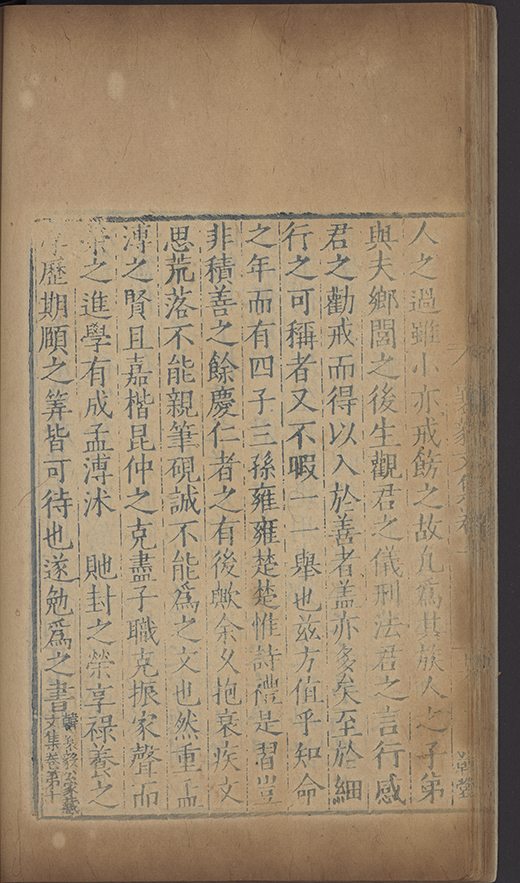 人之過雖小亦戒飭之故凡為其族人之子弟
與夫鄉閭之後生觀君之儀刑法君之言行感
君之勸戒而得以入於善者盖亦多矣至於細
行之可稱者又不暇一一舉也茲方值乎知命
之年而有四子三孫雍雍楚楚惟詩禮是習豈
非積善之餘慶仁者之有後歟余乆抱衰疾文
思荒落不能親筆硯誠不能爲之文也然重孟
溥之賢且嘉楷昆仲之克盡子職克振家聲而
榮之進學有成孟溥沭 貤封之榮享禄養之
歷期頤之筭皆可待也遂勉爲之書
韓襄毅公家藏
文集卷第十